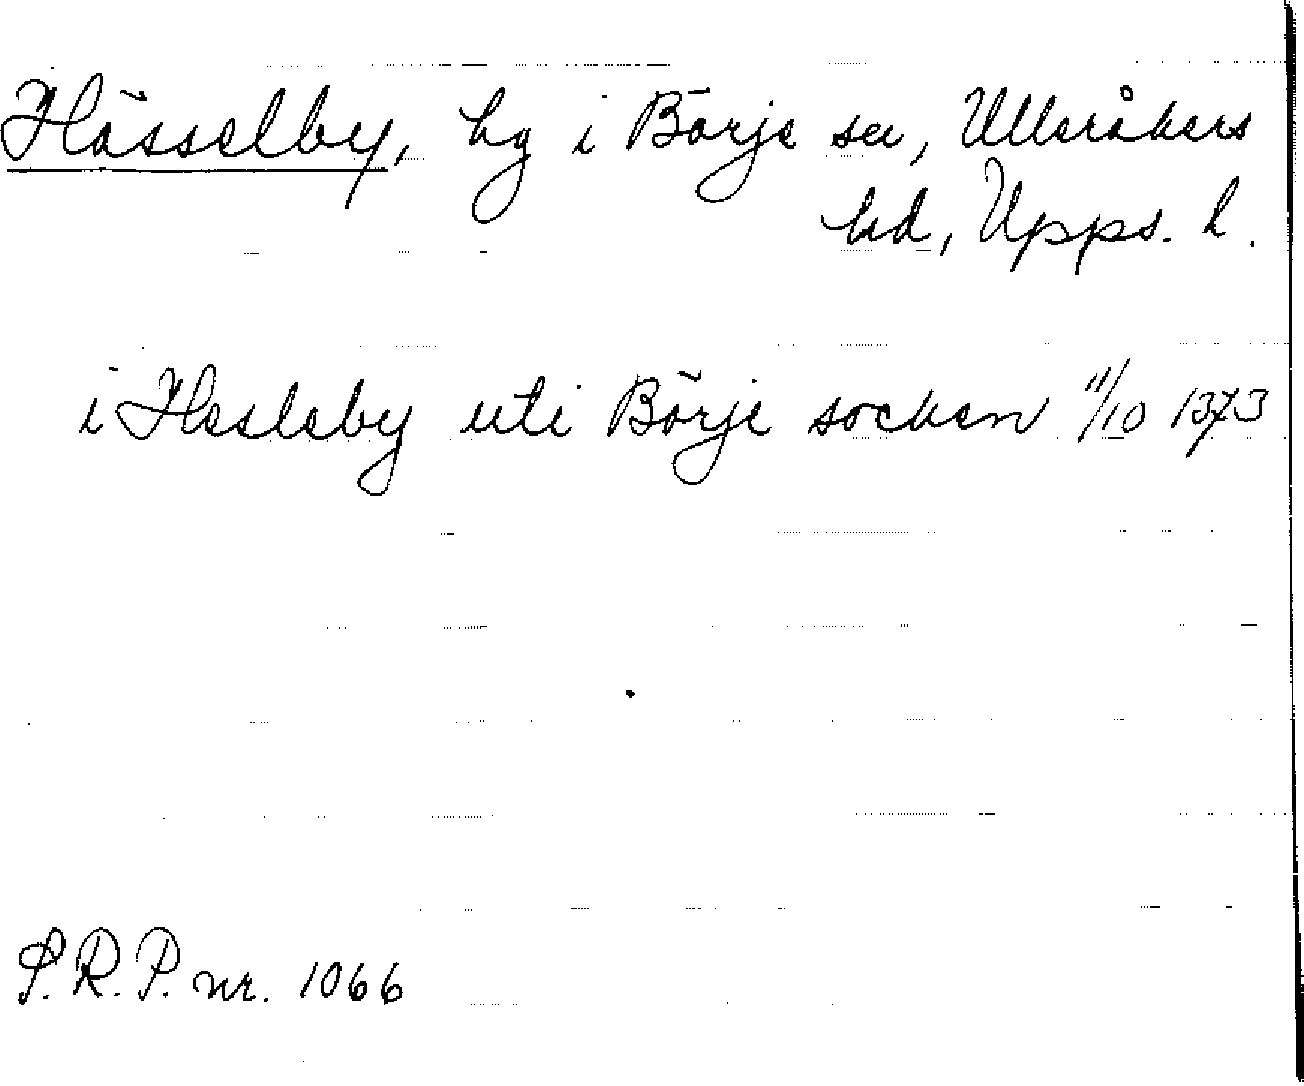 Hässelby, by i Börje sn, Ulleråkers
hd, Upps. l.
i Hesleby uti Börje socken 11/10 1373
S.R.P. nr. 1066